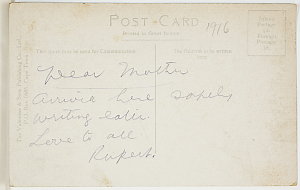 POST-CARD
1916
Printed in Great Britain
This space may be used for Communication
The Address to be written here
Dear Mother
Arrived here safely
writing later.
Love to all
Rupert.